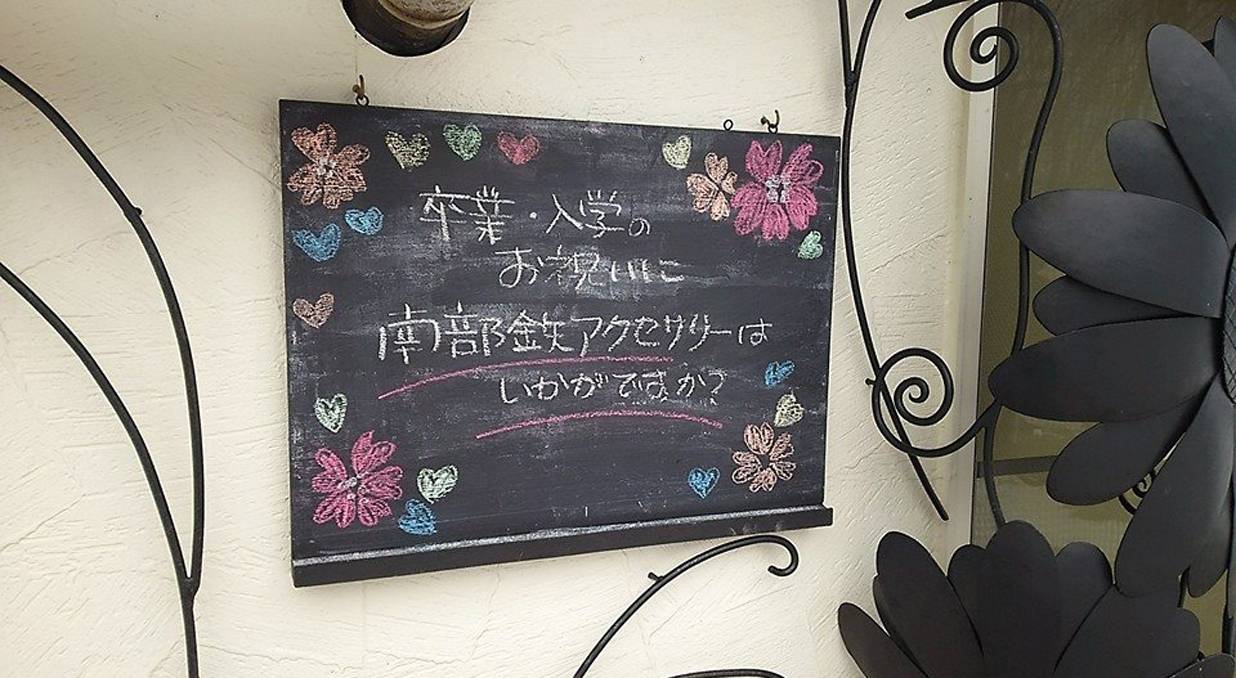 卒業・入学の
お祝いに
南部鉄アクセサリーは
いかがですか?